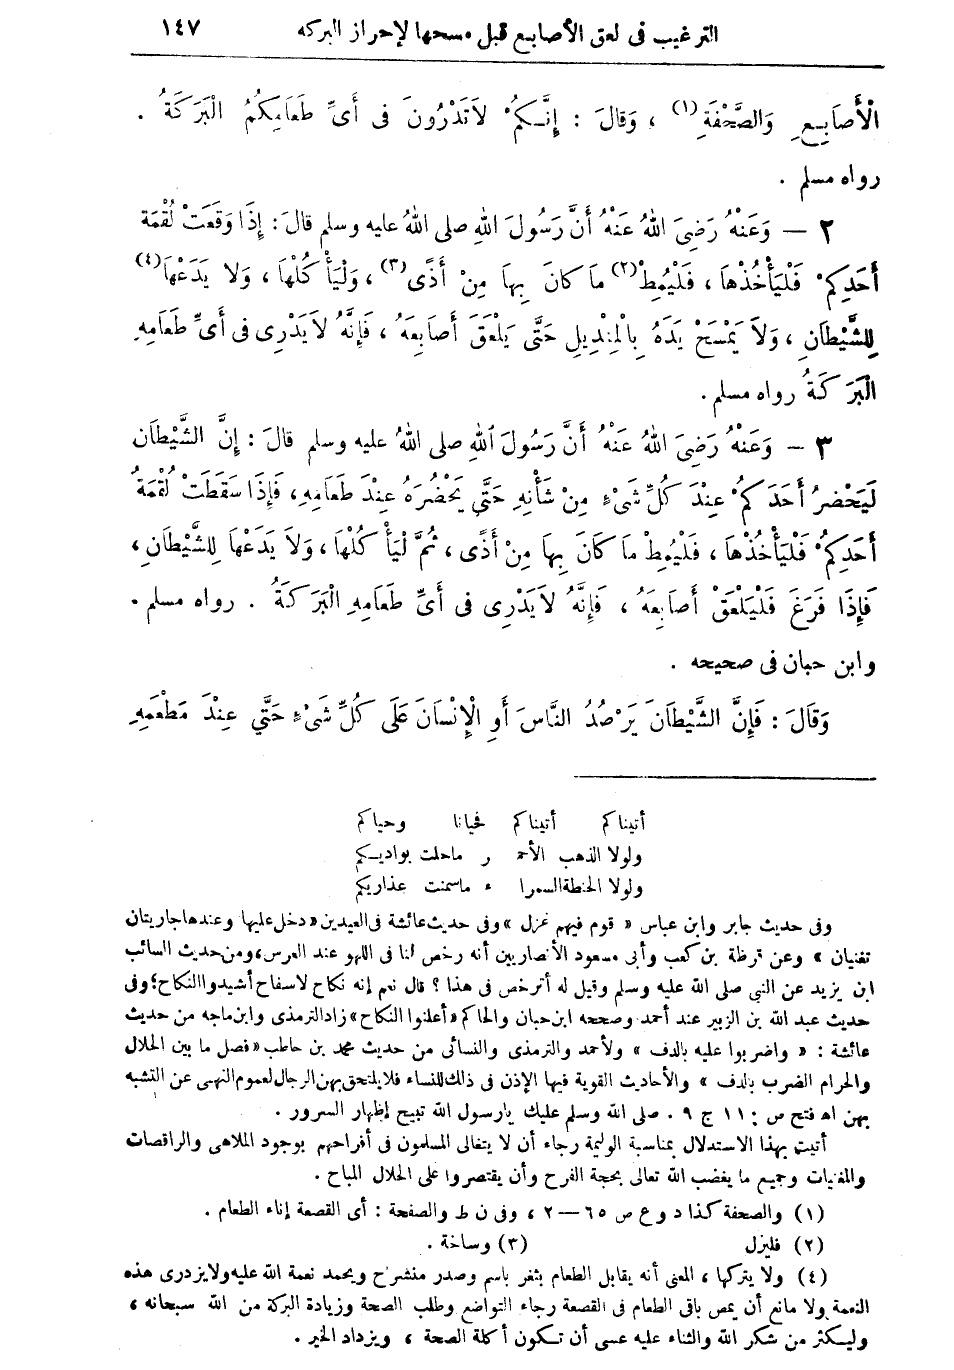 الترغيب فى لعق الأصابع قبل مسحها لإحراز البركه ١٤٧
الْأَصَابِعِ وَالصَّحْفَةِ (١) ، وَقَالَ : إِنَّكُمْ لاَتَدْرُونَ فى أَىِّ طَعَامِكُمُ الْبَرَكَةُ .
رواه مسلم .
٢ — وَعَنْهُ رَضِىَ اللهُ عَنْهُ أَنَّ رَسُولَ اللهِ صلى اللهُ عليه وسلم قالَ : إِذَا وَقَعَتْ لُقْمَةُ
أَحَدِكُمْ فَلْيَأْخُذْهَا ، فَلْيُمِطْ (٢) مَا كانَ بِهَا مِنْ أَذًى (٣) ، وَلْيَأْكُلْهَا ، وَلا يَدَعْهَا (٤)
لِلشَّيْطَانِ ، وَلاَ يَمْسَحْ يَدَهُ بِالْمِنْدِيلِ حَتَّى يَلْعَقَ أَصَابِعَهُ ، فَإِنَّهُ لاَيَدْرِى فى أَىِّ طَعَامِهِ
الْبَرَكَةُ رواه مسلم .
٣ — وَعَنْهُ رَضِىَ اللهُ عَنْهُ أَنَّ رَسُولَ اللهِ صلى اللهُ عليه وسلم قالَ : إِنَّ الشَّيْطَانَ
لَيَحْضُرُ أَحَدَكُمْ عِنْدَ كُلِّ شَىْءٍ مِنْ شَأْنِهِ حَتَّى يَحْضُرَهُ عِنْدَ طَعَامِهِ ، فَإِذَا سَقَطَتْ لُقْمَةُ
أَحَدِكُمْ فَلْيَأْخُذْهَا ، فَلْيُمِطْ مَا كَانَ بِهَا مِنْ أَذًى ، ثُمَّ لْيَأْكُلْهَا ، وَلاَ يَدَعْهَا لِلشَّيْطَانِ ،
فَإِذَا فَرَغَ فَلْيَلْعَقْ أَصَابِعَهُ ، فَإِنَّهُ لاَيَدْرِى فى أَىِّ طَعَامِهِ الْبَرَكَةُ . رواه مسلم .
وابن حبان فى صحيحه .
وَقَالَ : فَإِنَّ الشَّيْطَانَ يَرْصُدُ النَّاسَ أَوِ الْإِنْسَانَ عَلَى كُلِّ شَىْءٍ حَتَّى عِنْدَ مَطْعَمِهِ
أتيناكم أتيناكم فحيانا وحياكم
ولولا الذهب الأحمـ ر ماحلت بواديكم
ولولا الحنطة السمرا ء ماسمنت عذاريكم
وفى حديث جابر وابن عباس « قوم فيهم غزل » وفى حديث عائشة فى العيدين « دخل عليها وعندها جاريتان
تغنيان » وعن قرظة بن كعب وأبى مسعود الأنصاريين أنه رخص لنا فى اللهو عند العرس ، ومن حديث السائب
ابن يزيد عن النبي صلى الله عليه وسلم وقيل له أترخص فى هذا ؟ قال نعم إنه نكاح لاسفاح أشيدوا النكاح ؛ وفى
حديث عبد الله بن الزبير عند أحمد وصححه ابن حبان والحاكم «أعلنوا النكاح» زاد الترمذى وابن ماجه من حديث
عائشة : « واضربوا عليه بالدف » ولأحمد والترمذى والنسائى من حديث محمد بن حاطب « فصل ما بين الحلال
والحرام الضرب بالدف » والأحاديث القوية فيها الإذن فى ذلك للنساء فلا يلتحق بهن الرجال لعموم النهى عن التشبه
بهن اهـ فتح ص ١١ ج ٩ . صلى الله وسلم عليك يارسول الله تبيح إظهار السرور .
أتيت بهذا الاستدلال بمناسبة الوليمة رجاء أن لا يتغالى المسلمون فى أفراحهم بوجود الملاهى والراقصات
والمغنيات وجميع ما يغضب الله تعالى بحجة الفرح وأن يقتصروا على الحلال المباح .
(١) والصحفة كذا د و ع ص ٦٥ — ٢ ، وفى ن ط والصفحة : أى القصعة إناء الطعام .
(٢) فليزل (٣) وساخة .
(٤) ولا يتركها ، المعنى أنه يقابل الطعام بثغر باسم وصدر منشرح ويحمد نعمة الله عليه ولا يزدرى هذه
النعمة ولا مانع أن يمص باقى الطعام فى القصعة رجاء التواضع وطلب الصحة وزيادة البركة من الله سبحانه ،
وليكثر من شكر الله والثناء عليه عسى أن تكون أكلة الصحة ، ويزداد الخير .